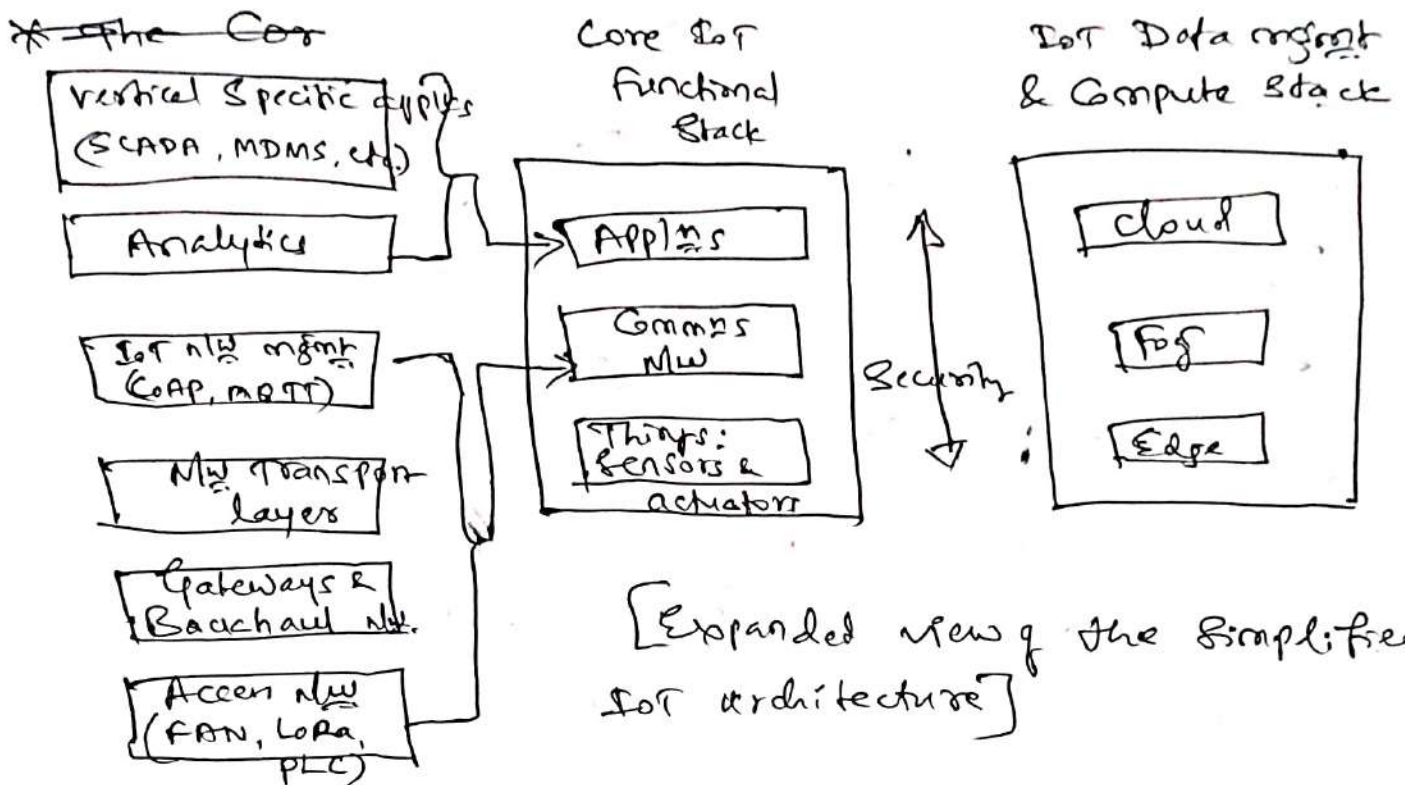 * The Cor
Vertical Specific applns
(SCADA, MDMS, etc.)
Analytics
IoT n/w mgmt
(CoAP, MQTT)
N/w Transport
layer
Gateways &
Backhaul N/w.
Access N/w
(FAN, LoRa,
PLC)
Core IoT
Functional
Stack
Applns
Commns
N/w
Things:
Sensors &
actuators
Security
IoT Data mgmt
& Compute Stack
Cloud
Fog
Edge
[Expanded view of the Simplifie
IoT architecture]